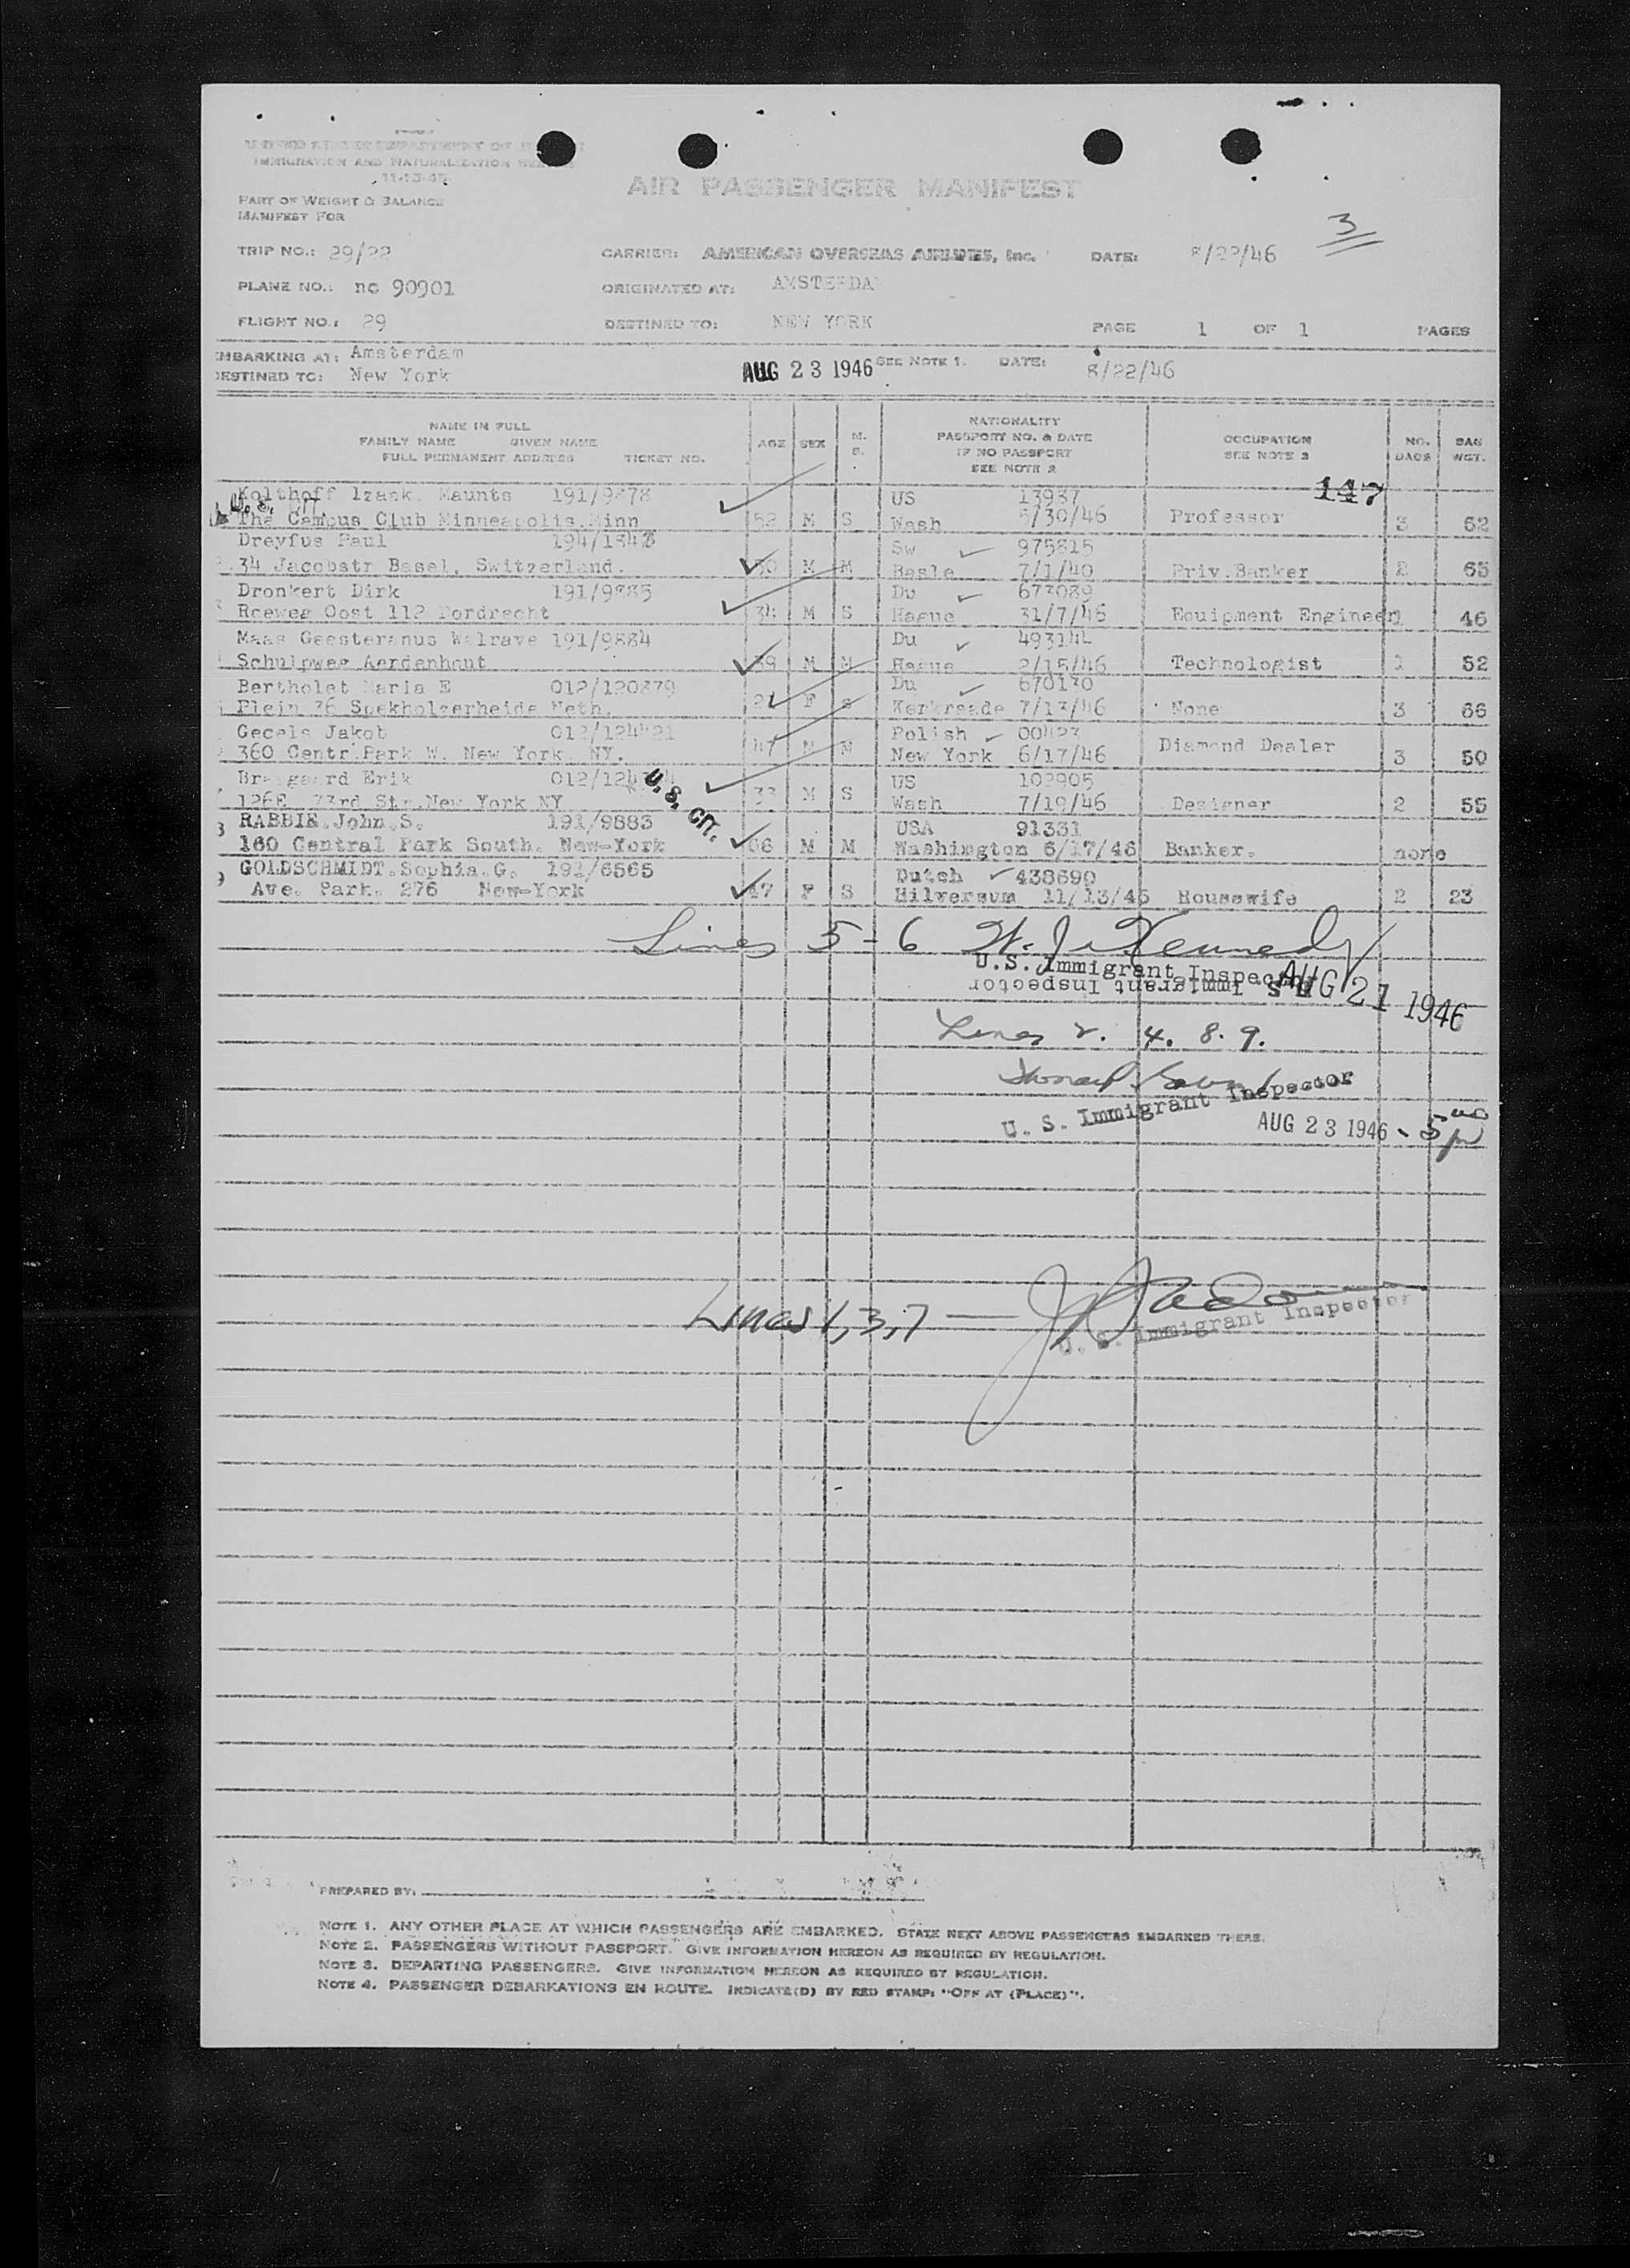 UNITED STATES DEPARTMENT OF
IMMIGRATION AND NATURALIZATION
11-15-45
AIR PASSENGER MANIFEST
PART OF WEIGHT & BALANCE
MANIFEST FOR
3
TRIP NO.: 29/22 CARRIER: AMERICAN OVERSEAS AIRLINES, Inc. DATE: 8/22/46
PLANE NO.: nc 90901 ORIGINATED AT: AMSTERDA
FLIGHT NO.: 29 DESTINED TO: NEW YORK PAGE 1 OF 1 PAGES
EMBARKING AT: Amsterdam
DESTINED TO: New York AUG 23 1946 SEE NOTE 1. DATE: 8/22/46
NAME IN FULL
FAMILY NAME GIVEN NAME
FULL PERMANENT ADDRESS TICKET NO.
AGE SEX M. S.
NATIONALITY
PASSPORT NO. & DATE
IF NO PASSPORT
SEE NOTE 2
OCCUPATION
SEE NOTE 3
NO. BAGS
BAG WGT.
147
Kolthoff Izaak. Maunts 191/9878 US 13937
U.S. CIT.
The Campus Club Minneapolis.Minn 52 M S Wash 5/30/46 Professor 3 62
Dreyfus Paul 194/1843 Sw 975815
34 Jacobstr Basel, Switzerland. 30 M M Basle 7/1/40 Priv.Banker 2 65
Dronkert Dirk 191/9885 Du 673089
Reeweg Oost 112 Dordrecht 34 M S Hague 31/7/46 Equipment Engineer 1 46
Maas Geesteranus Walrave 191/9884 Du 493144
Schulpweg Aerdenhout 39 M M Hague 2/15/46 Technologist 1 52
Bertholet Maria E 012/120379 Du 670130
Plein 36 Spekholzerheide Neth. F S Kerkraade 7/13/46 None 3 66
Gecels Jakob Polish 00423
360 Centr.Park W. New York NY. 47 M M New York 6/17/46 Diamond Dealer 3 50
Erik US 102905
U.S. CIT.
126E. 73rd Str.New York NY 33 M S Wash 7/19/46 Designer 2 55
8 RABBIE.John.S. 191/9883 USA 91331
160 Central Park South. New-York 66 M M Washington 6/17/46 Banker. none
9 GOLDSCHMIDT.Sophia.G. 191/6565 Dutch 438690
Ave. Park. 276 New-York 47 F S Hilversum 11/13/45 Housewife 2 23
Lines 5-6 W. J. Kennedy
U.S. Immigrant Inspector
U.S. Immigrant Inspector
AUG 21 1946
Lines 2. 4. 8. 9.
U. S. Immigrant Inspector
AUG 23 1946 - 5 00 pm
Lines 1, 3, 7 —
U. S. Immigrant Inspector
PREPARED BY:
NOTE 1. ANY OTHER PLACE AT WHICH PASSENGERS ARE EMBARKED. STATE NEXT ABOVE PASSENGERS EMBARKED THERE.
NOTE 2. PASSENGERS WITHOUT PASSPORT. GIVE INFORMATION HEREON AS REQUIRED BY REGULATION.
NOTE 3. DEPARTING PASSENGERS. GIVE INFORMATION HEREON AS REQUIRED BY REGULATION.
NOTE 4. PASSENGER DEBARKATIONS EN ROUTE. INDICATE(D) BY RED STAMP: "OFF AT (PLACE)".